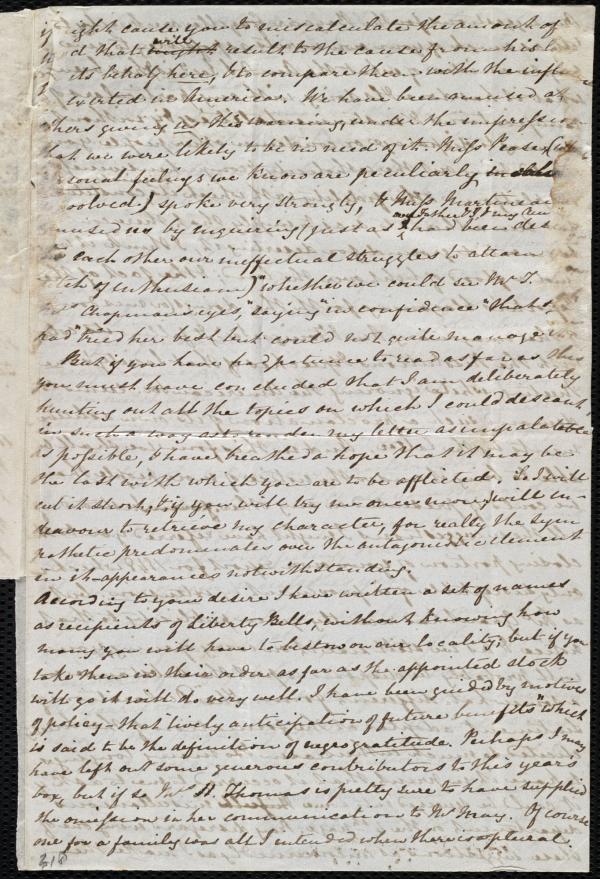 might cause you to miscalculate the amount of
d that will result to the cause from his
its totality here, & to compare them with the infl
exerted in America. We have been amused at
hers giving us this warning, under the impression
that we were likely to be in need of it. Miss Pease (
sonal feelings we know are peculiarly
volved) spoke very strongly, & Miss Martineau
mused us by inquiring (just as my Father & I & my Aun had been des
to each other our ineffectual struggles to attain
itch of enthusiasm) "whether we could see Mr. T.
Mrs Chapman's eyes," saying "in confidence" that s
had "tried her best but could not quite manage
But if you have had patience to read as far as this
you must have concluded that I am deliberately
hunting out all the topics on which I could descant
in such a way as to render my letter as unpalatable
as possible, & have breathed a hope that it may be
the last with which you are to be afflicted. So I will
cut it short, & if you will try me once more, will en-
deavour to retrieve my character, for really the sym
pathetic predominates over the antagonistic element
in it—appearances notwithstanding.
According to your desire I have written a set of names
as recipients of Liberty Bells, without knowing how
many you will have to bestow on our locality, but if you
take them in their order as far as the appointed stock
will go it will do very well. I have been guided by motives
of policy—that lively anticipation of future benefits" which
is said to be the definition of negro gratitude. Perhaps I may
have left out some generous contributors to this year's
box, but if so Mrs H. Thomas is pretty sure to have supplied
the omission in her communication to Mr May. Of course
one for a family was all I intended when there is a plural.